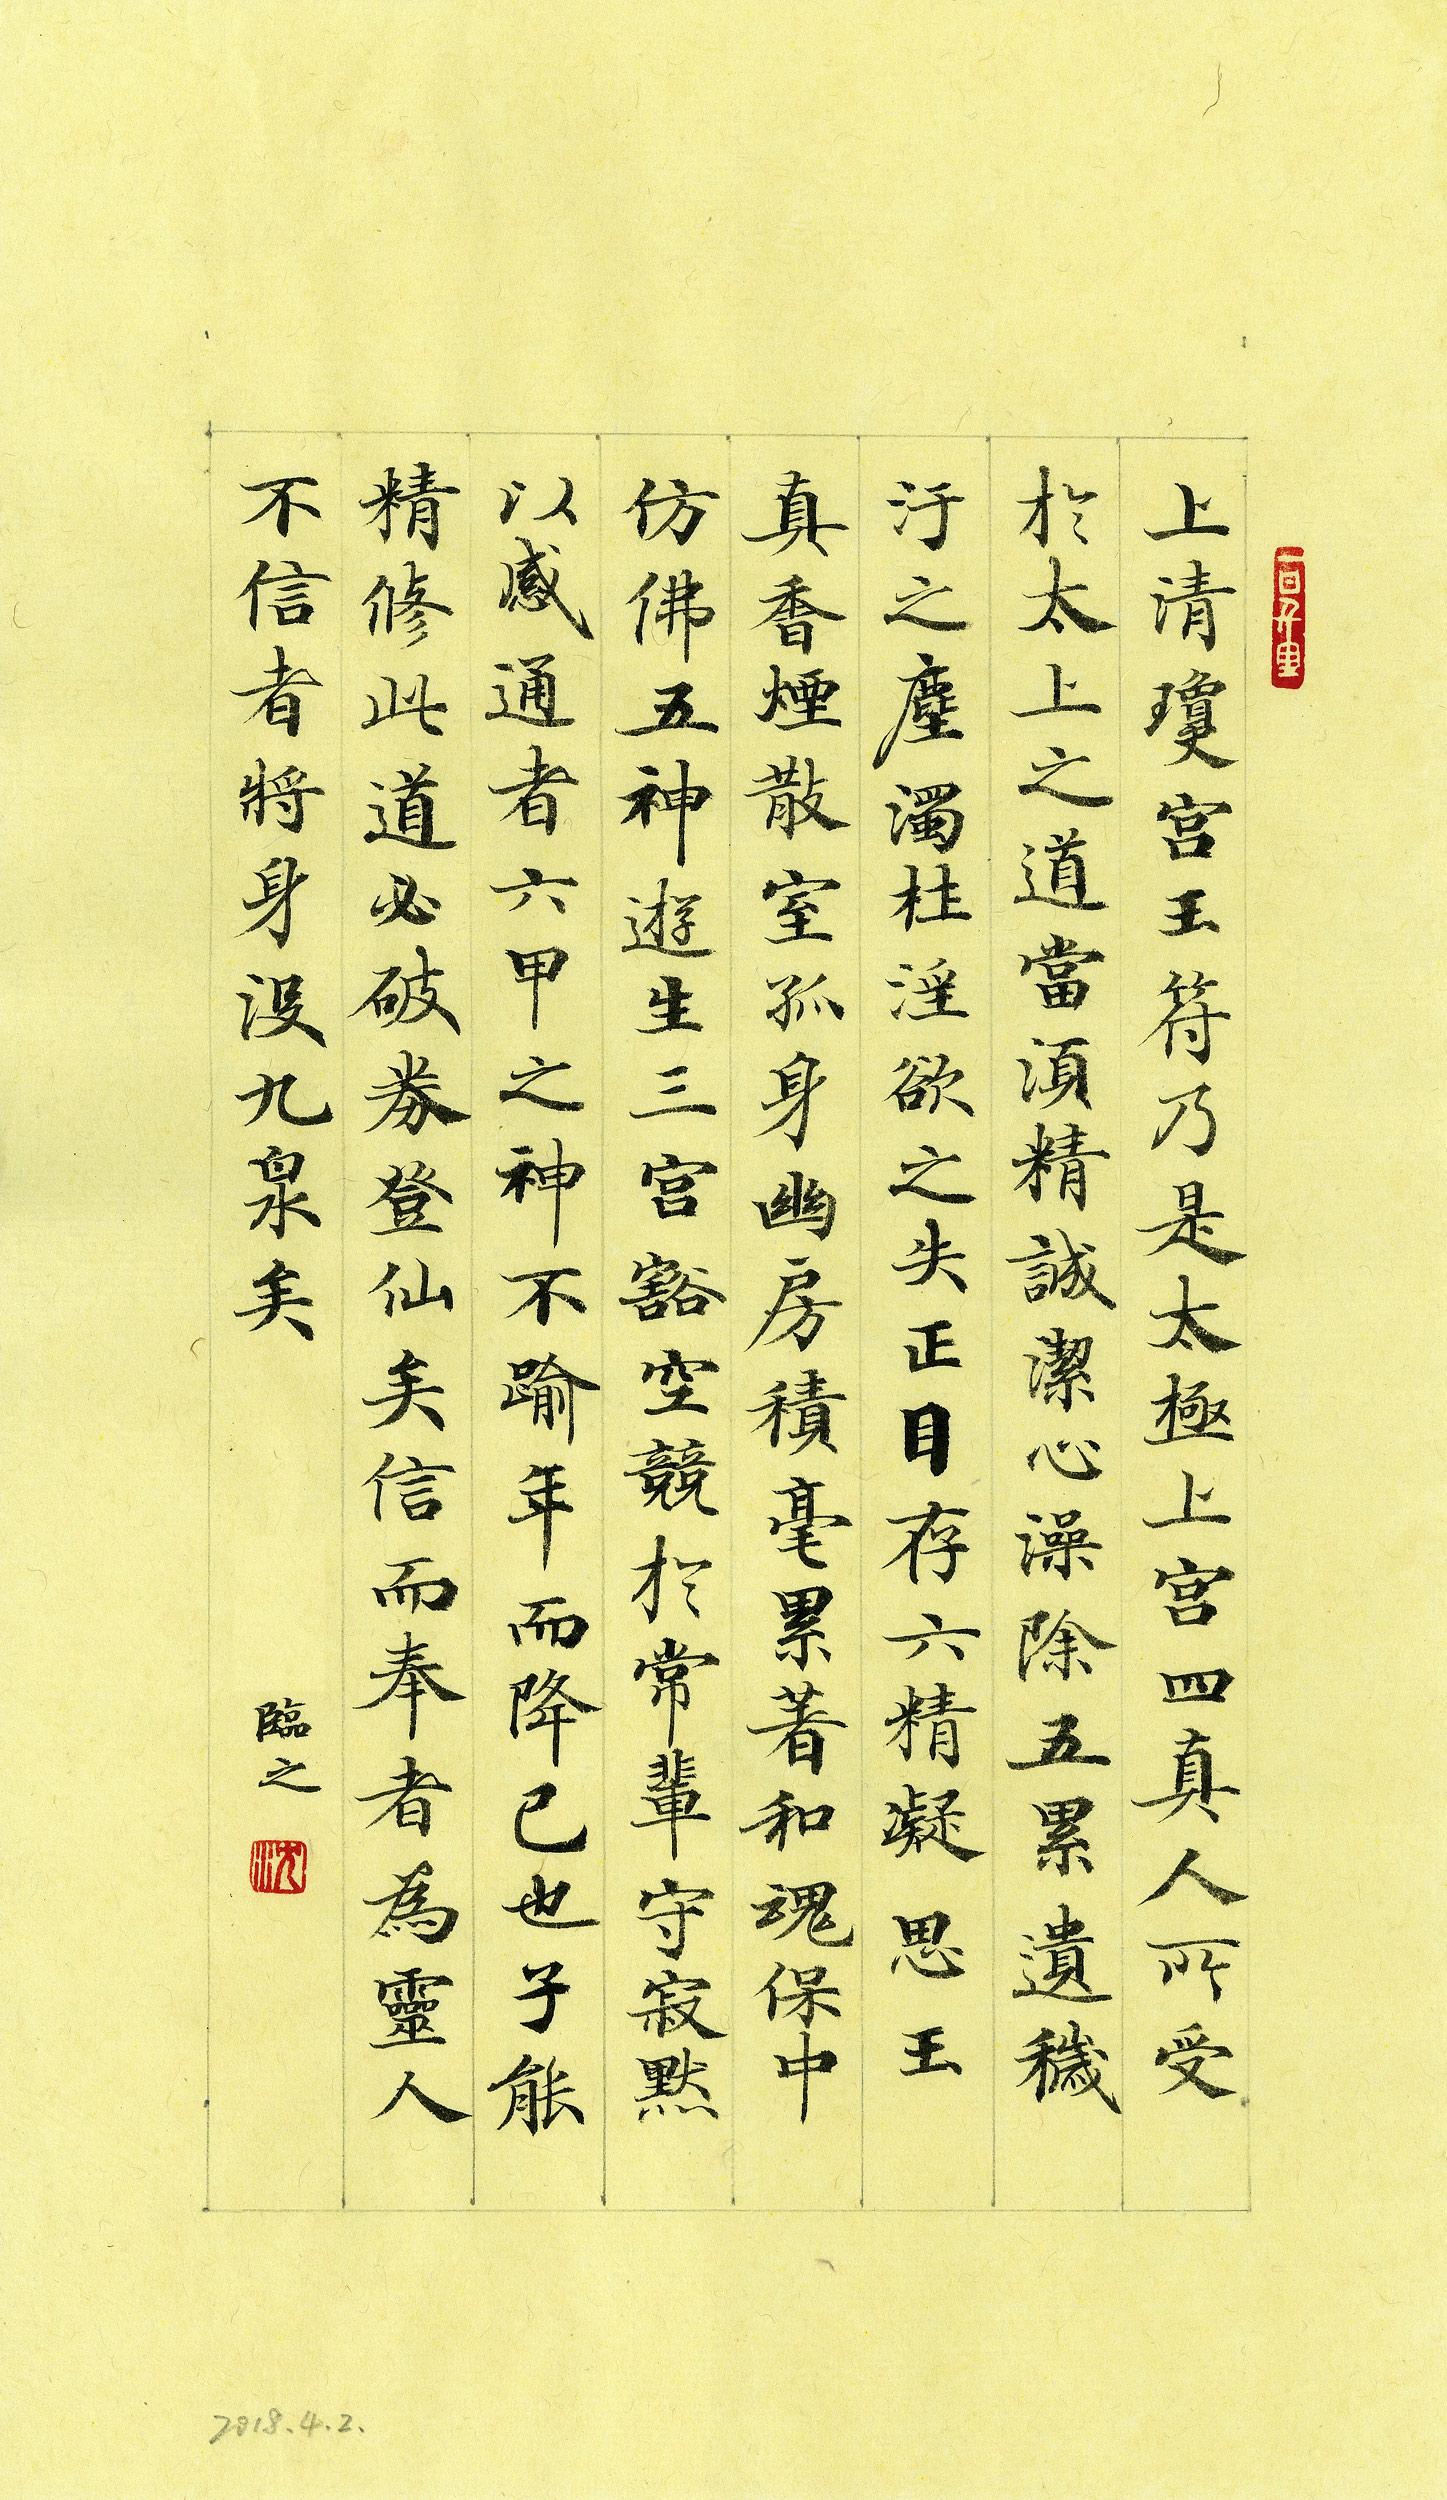 上清瓊宮王符乃是太極上宮四真人所受
於太上之道當湏精誠潔心澡除五累遺穢
汙之塵濁杜淫欲之失正目存六精凝思王
真香煙散室孤身幽房積毫累著和魂保中
仿佛五神遊生三宮豁空競於常輩守寂默
以感通者六甲之神不踰年而降已也子能
精修此道必破券登仙矣信而奉者為靈人
不信者將身沒九泉矣
臨之
沈
2018.4.2.